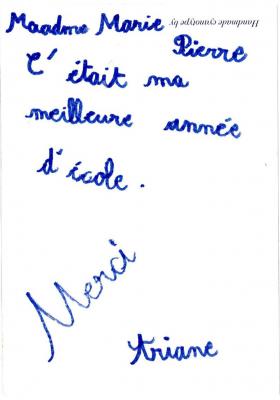 Maadme Marie
Pierre
Handmade cyanotype by
C'était ma
meilleure année
d'école.
Merci
Ariane